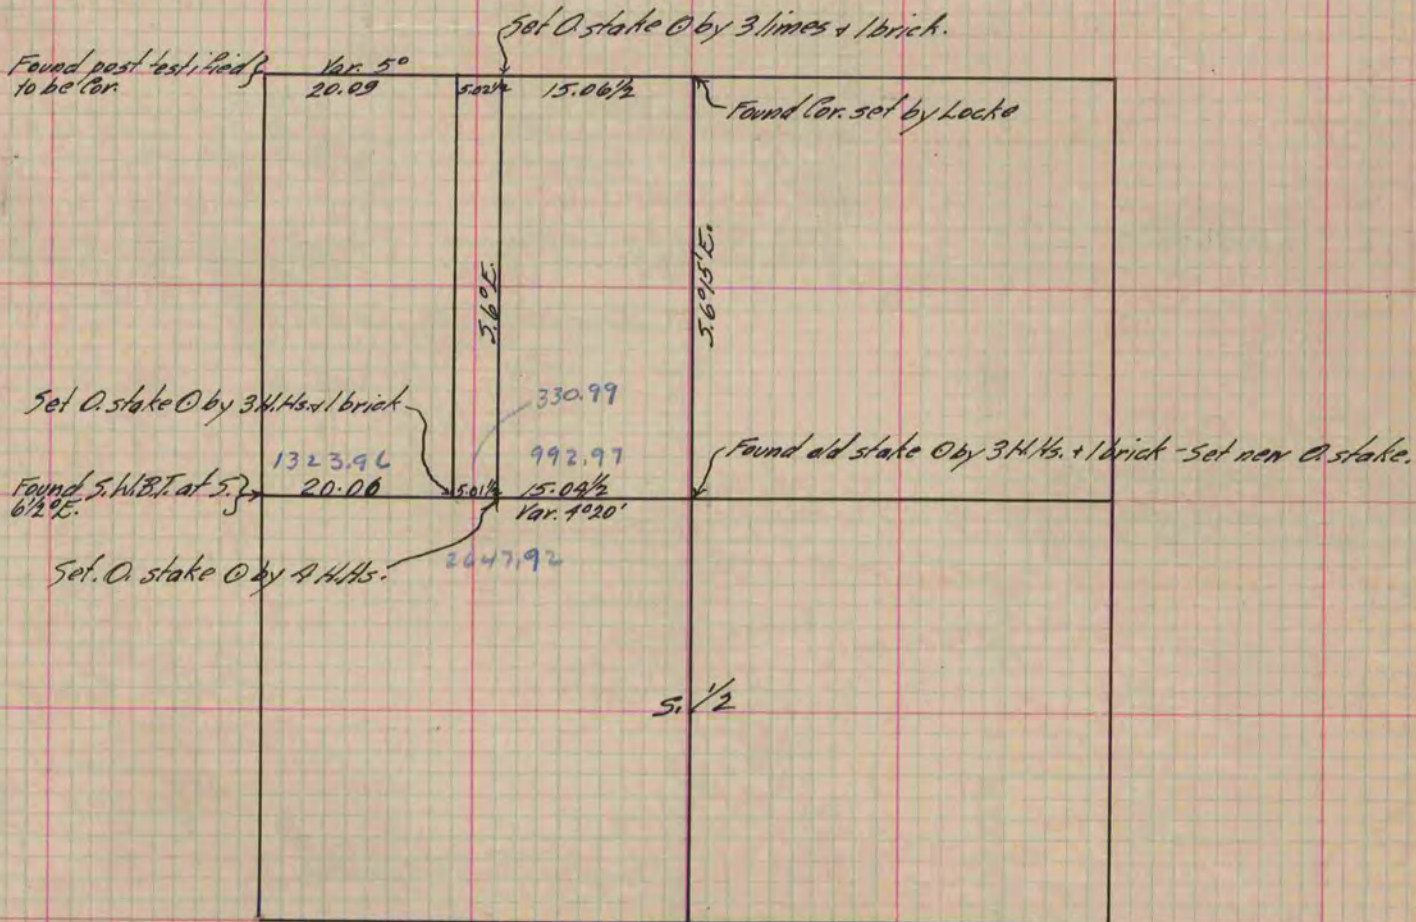 Set O. stake ⊙ by 3 limes + 1 brick.
Found post testified
to be Cor.
Var. 5°
20.09
5.02½
15.06½
Found Cor. set by Locke
S.6°E.
S.6°15'E.
Set O. stake ⊙ by 3 H.Hs. + 1 brick
330.99
1323.96
992.97
Found old stake ⊙ by 3 H.Hs. + 1 brick - Set new O. stake.
Found S.W.B.T. at S.
6½°E.
20.06
5.01½
15.04½
Var. 4°20'
Set. O. stake ⊙ by 4 H.Hs.
2647.92
S. 1/2